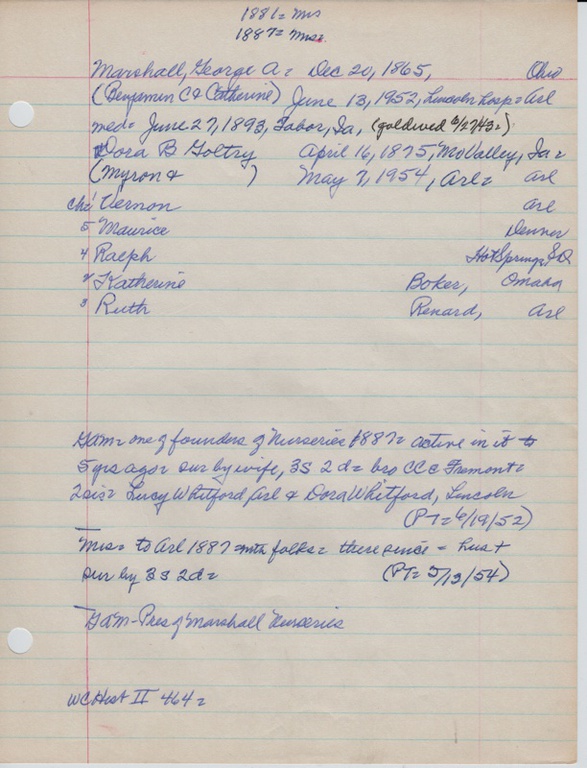 1881= Mrs
1887= Mrs=
Marshall, George A= Dec 20, 1865, Ohio
(Benjamin C & Catherine) June 13, 1952, Lincoln hosp= Arl
med= June 27, 1893, Tabor, Ia, (goldwed 6/27/43=)
Dora B Goltry April 16, 1875, Mo Valley, Ia=
(Myron & ) May 7, 1954, Arl= Arl
ch: Vernon Arl
5 Maurice Denver
4 Ralph Hot Springs SD
2 Katherine Boker, Omaha
3 Ruth Renard, Arl
GAM= one of founders of Nurseries 1887= active in it to
5 yrs ago= sur by wife, 3S 2d= bro CC & Fremont=
2 sis= Lucy Whitford Arl & Dora Whitford, Lincoln
(PT= 6/19/52)
Mrs= to Arl 1887 with folks= there since =
sur by 3S 2d= (PT= 5/13/54)
GAM-Pres of Marshall Nurseries
WC Hist II 464=